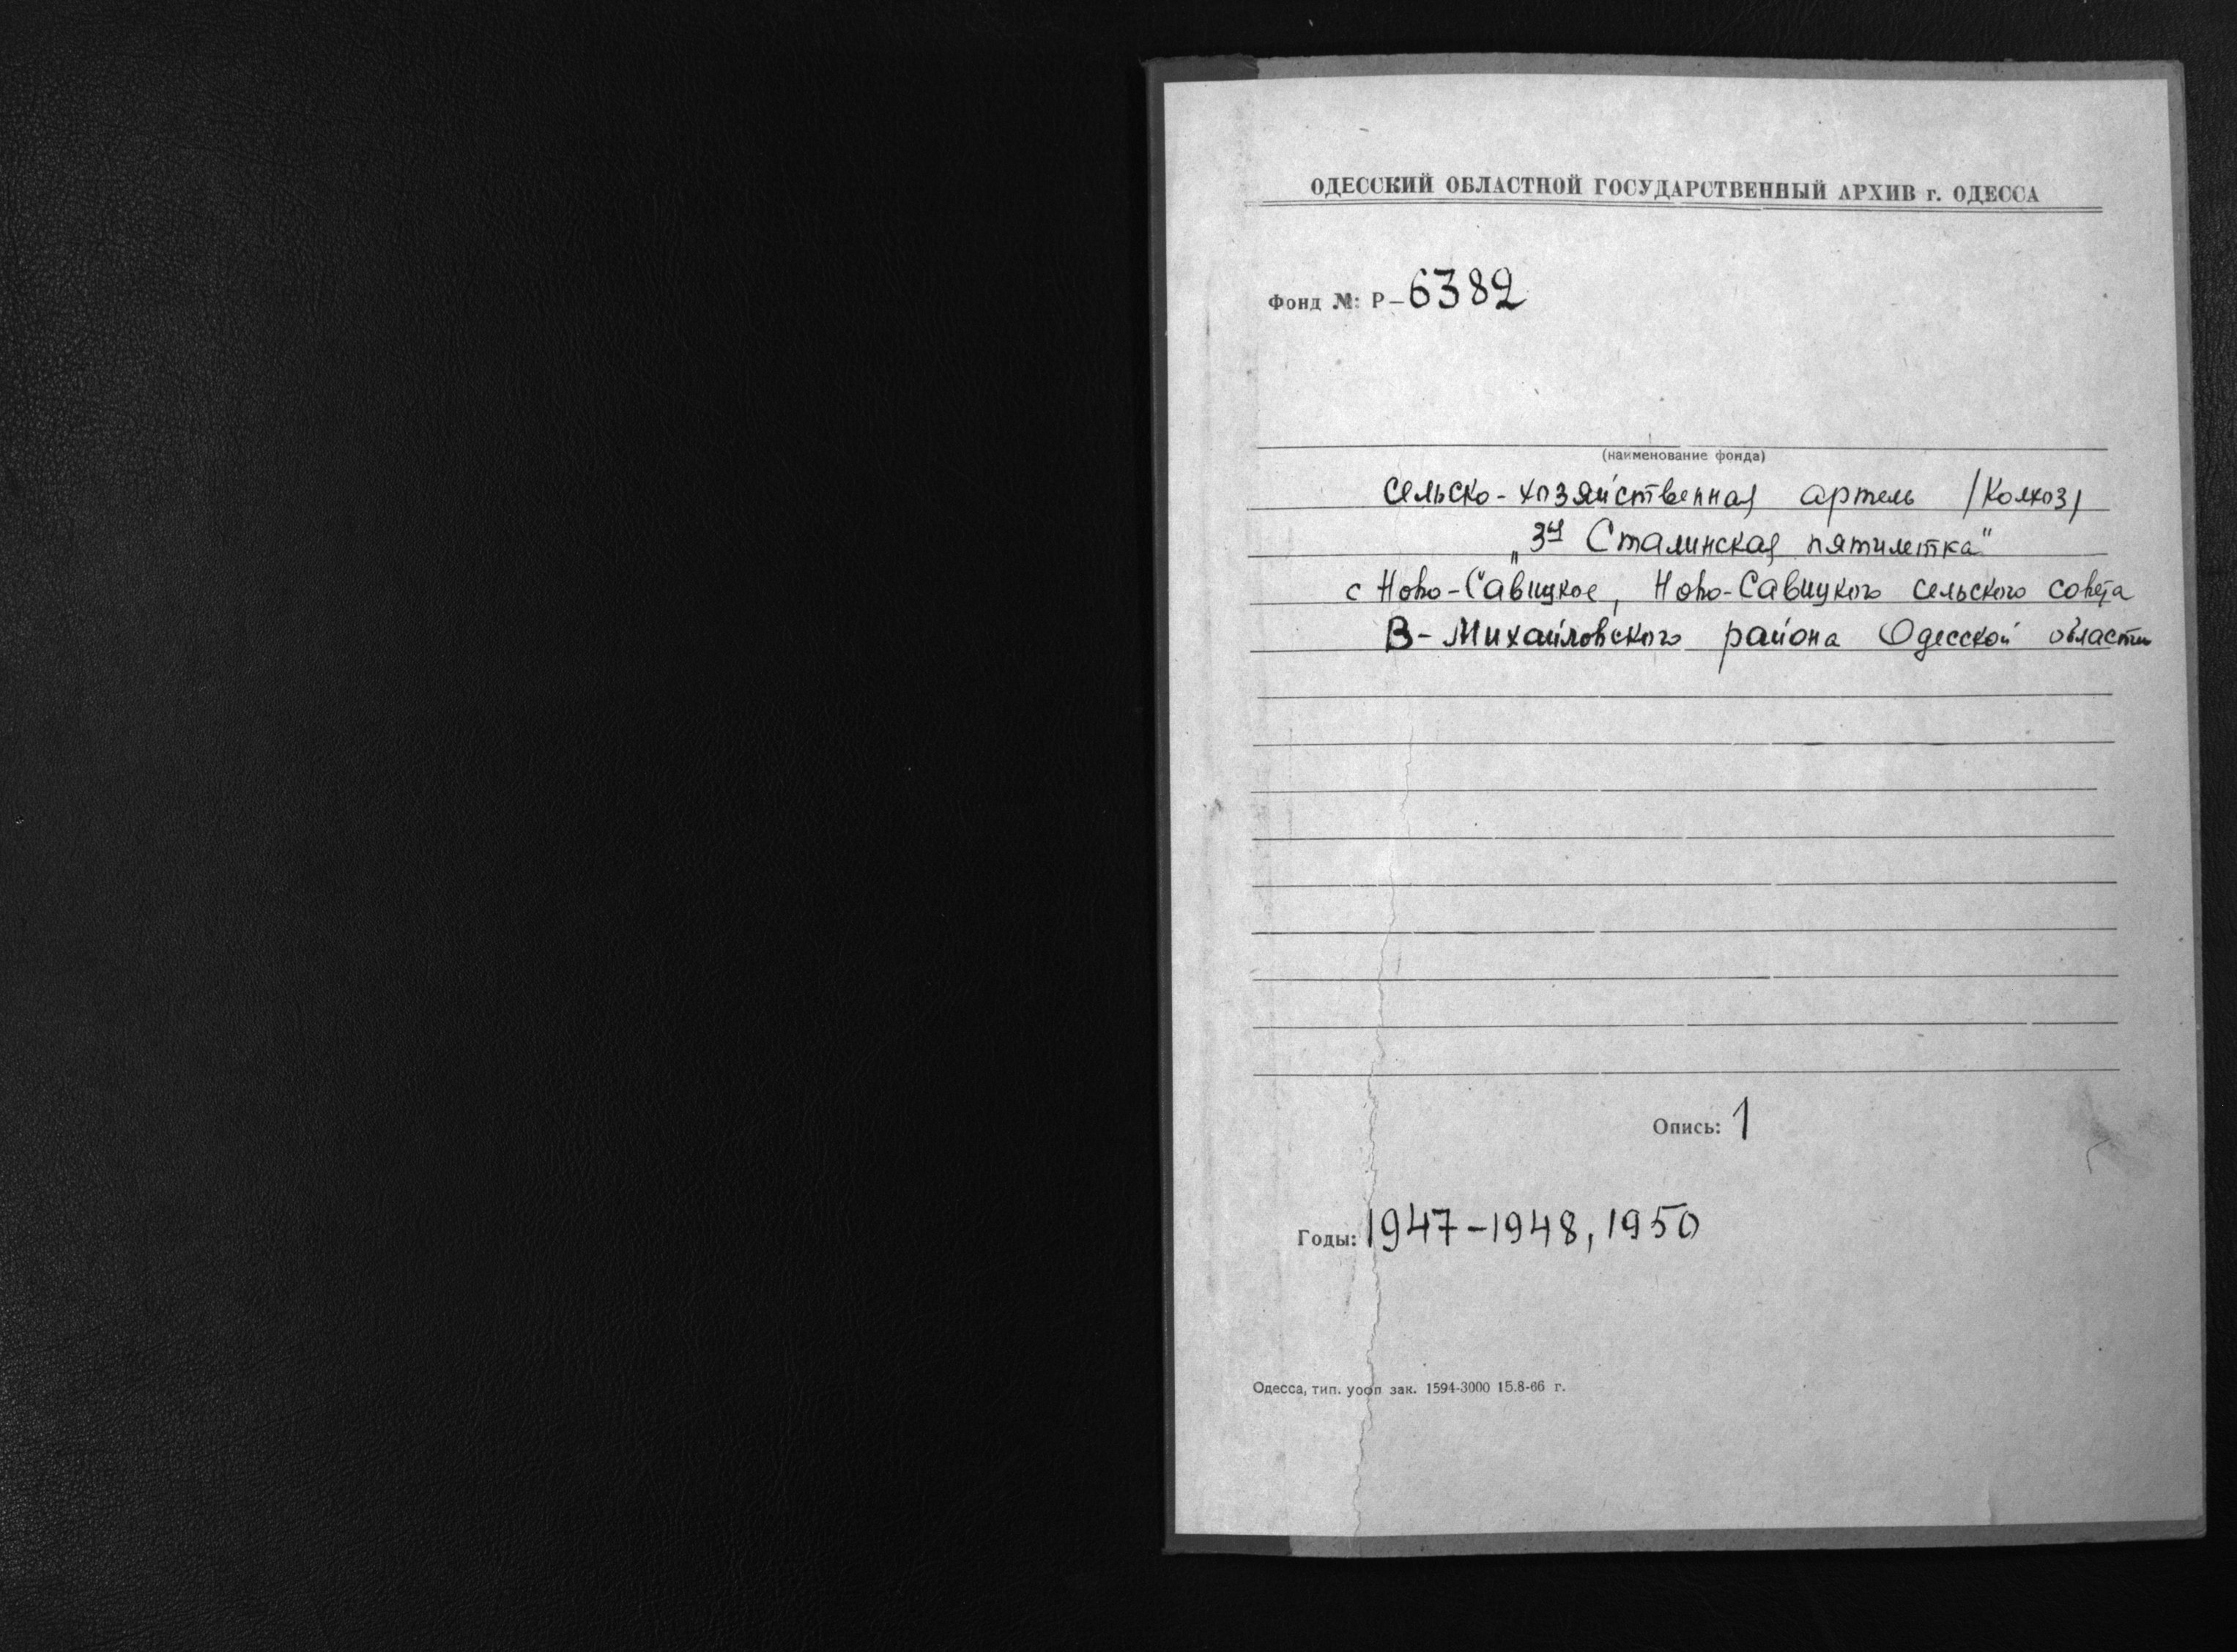 ОДЕССКИЙ ОБЛАСТНОЙ ГОСУДАРСТВЕННЫЙ АРХИВ г. ОДЕССА
Фонд №: Р-6382
(наименование фонда)
Сельско-хозяйственная артель /Колхоз/
„3я Сталинская пятилетка"
с Ново-Савицкое, Ново-Савицкого сельского совета
В-Михайловского района Одесской области
Опись: 1
Годы: 1947-1948, 1950
Одесса, тип. уооп зак. 1594-3000 15.8-66 г.